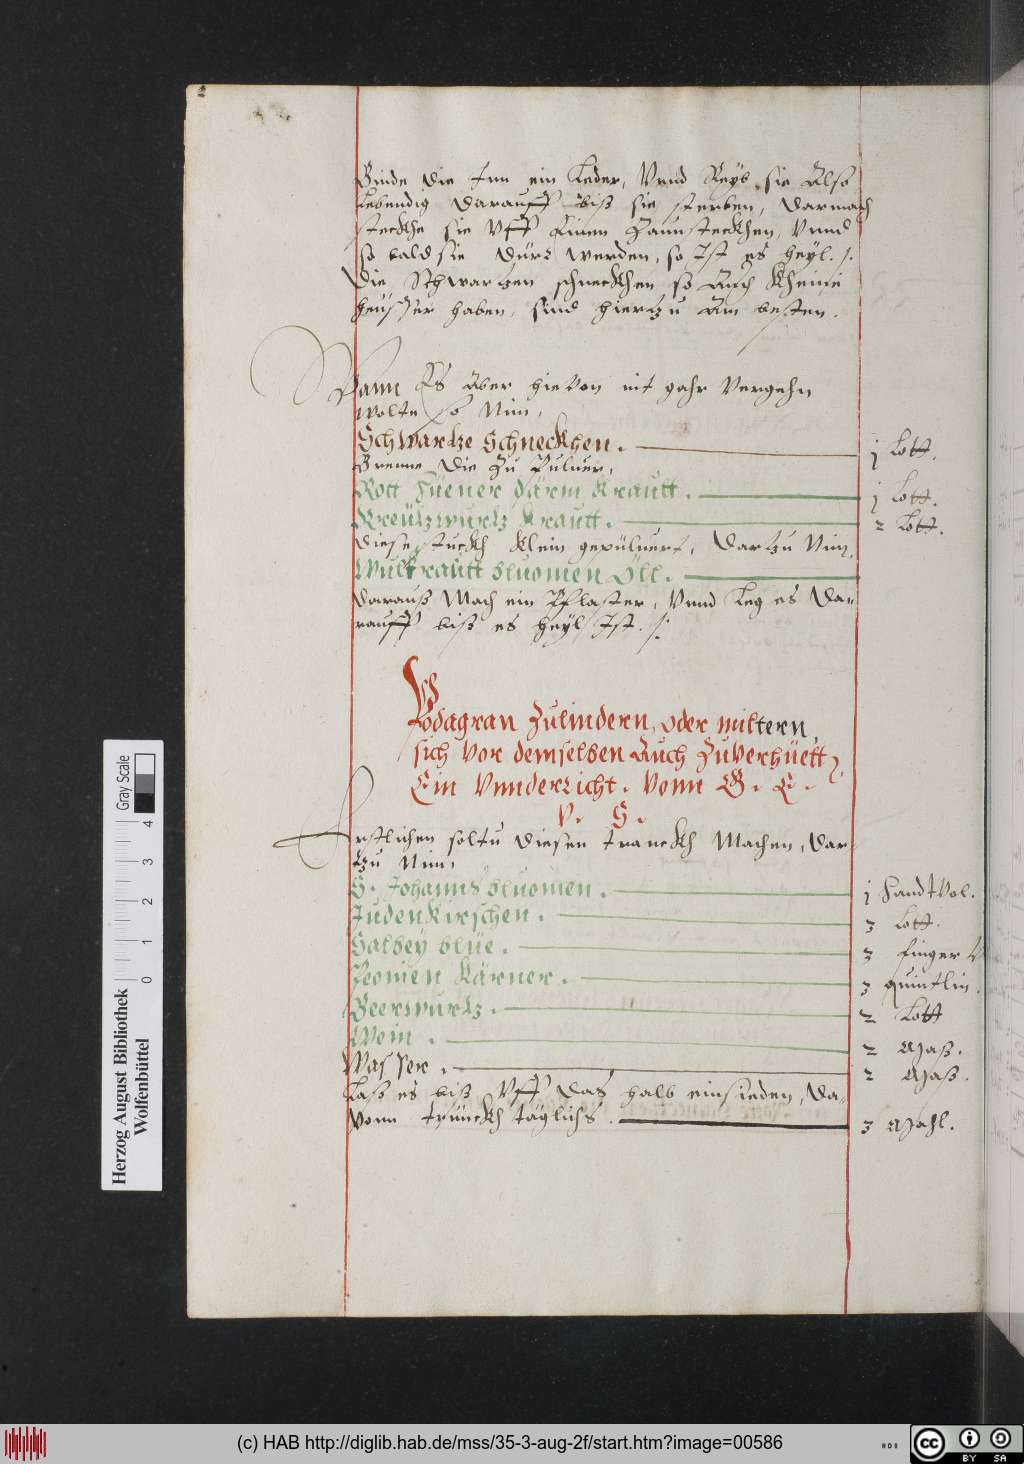 Binde die Inn ein Leder, Vnnd Reyb sie Also
Lebendig darauff biß sie sterben, darnach
steckhe sie Vff Einen Zaunsteckhen, Vnnd
so bald sie dürr werden, so Ist es heyl. /.
die Schwartzen schneckhen so Auch kheine
heüsser haben, sind hiertzu Am besten.
Wann Es Aber hievon nit gahr Vergehn
wolte so Nim,
Schwartze Schneckhen. j Lott.
Brenne die Zu Puluer,
Rott Hüener därm Krautt. j Lott.
Kreützwurtz Krautt. 2 Lott.
diese stuckh klein gepüluert, dartzu Nim,
Wulkrautt bluomen Öll.
darauß Mach ein Pflaster, Vnnd Leg es da-
rauff biß es heyl Ist. /.
Podagran Zulindern, oder miltern,
sich vor demselben Auch Zuverhüett
Ein Vnnderricht. Vonn G. E.
V. S.
Erstlichen soltu diesen tranckh Machen, dar
tzu Nim,
S. Johanns bluomen. j Handt Vol.
Judenkirschen. 3 Lott.
Salbey blüe. 3 finger V
Peonien Kärner. 3 quintlin.
Beerwurtz. 2 Lott
Wein. 2 Maß.
Wasser. 2 Maß.
Laß es biß Vff das halb einsieden, da-
vonn trünckh täglichs. 3 Mahl.
Herzog August Bibliothek
Wolfenbüttel
0 1 2 3 4
Gray Scale
(c) HAB http://diglib.hab.de/mss/35-3-aug-2f/start.htm?image=00586
cc BY SA